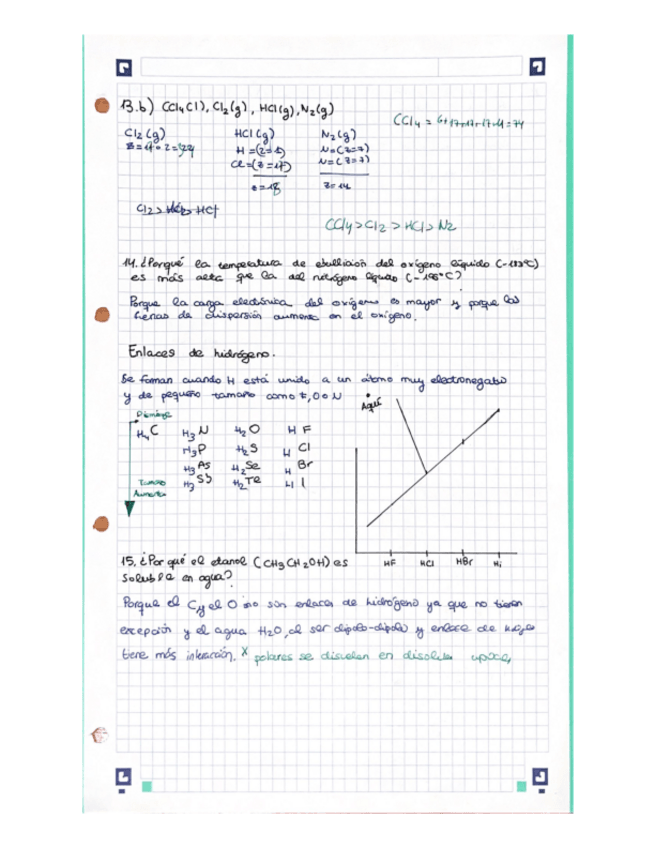 13.b) CCl4(l), Cl2(g), HCl(g), N2(g)
CCl4 = 6+17+17+17+17=74
Cl2(g) HCl(g) N2(g)
H =(Z=1) N=(Z=7)
Cl=(Z=17) N=(Z=7)
z=18 Z=14
CCl4>Cl2>HCl>N2
14. ¿Porqué la temperatura de ebullición del oxígeno líquido (-183ºC)
es más alta que la del nitrógeno líquido (-196ºC)?
Porque la carga electrónica del oxígeno es mayor y porque las
fuerzas de dispersión aumenta en el oxígeno.
Enlaces de hidrógeno.
Se forman cuando H está unido a un átomo muy electronegativo
y de pequeño tamaño como F, O o N
Aquí
H4C H3N H2O HF
H3P H2S H Cl
H3As H2Se H Br
H3Sb H2Te H I
Tamaño
Aumenta
HF HCl HBr Hi
15. ¿Por qué el etanol (CH3CH2OH) es
soluble en agua?
Porque el C y el O no son enlaces de hidrógeno ya que no tienen
excepción y el agua H2O, al ser dipolo-dipolo y enlace de
tiene más interacción. x polares se disuelven en